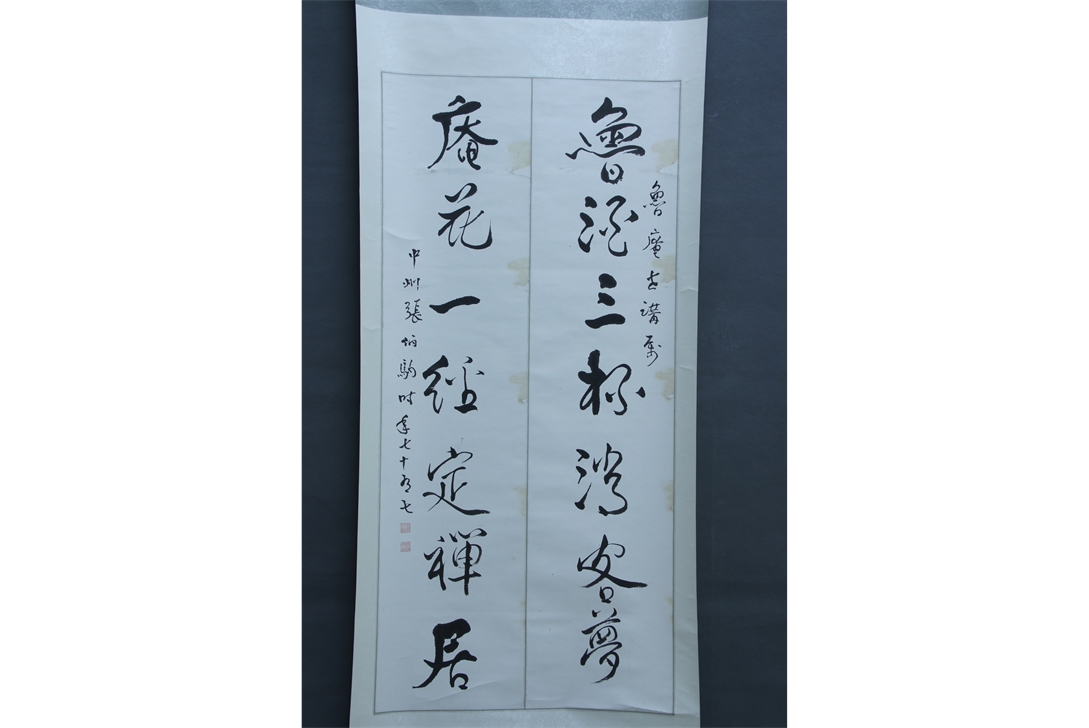 魯庵老講席
魯酒三杯消客夢
庵花一經定禪居
中州張炳駒時年七十有七